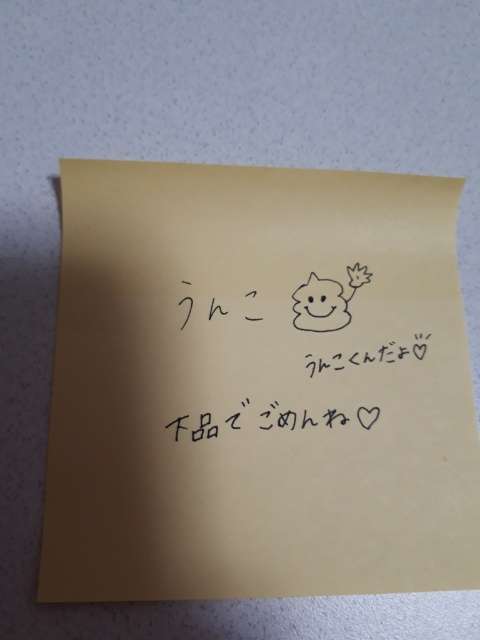 うんこ
うんこくんだよ♡
下品でごめんね♡